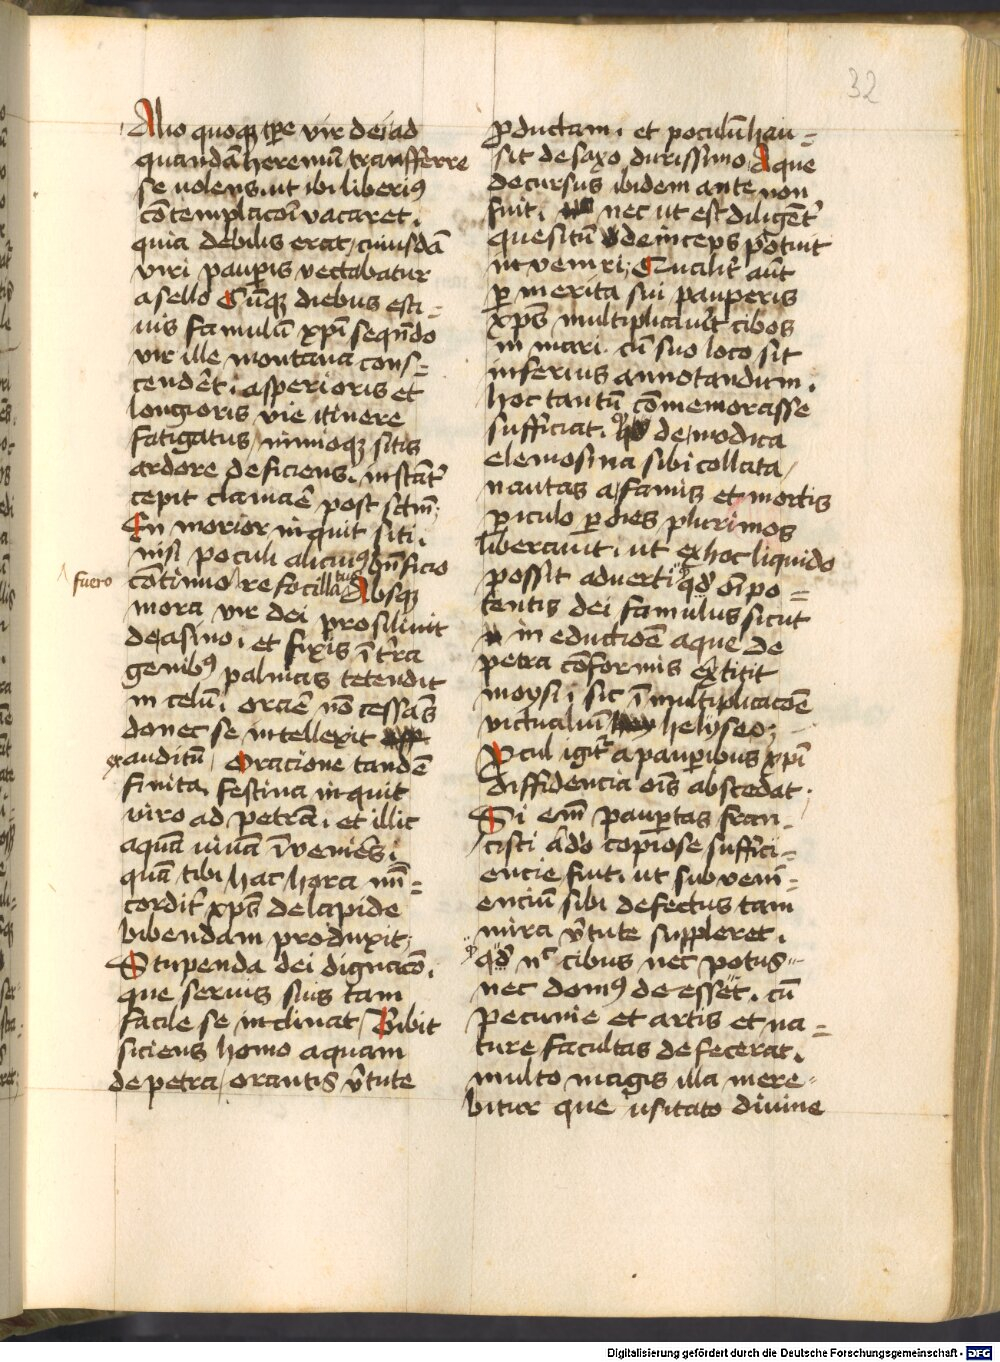 32
Alio quoq̧ tp̄e vir dei ad
quandā heremū transferre
se uolens. ut ibi liberi⁹
cōtemplacōi vacaret.
quia debilis erat, cuiusdā
viri paup̱is vectabatur
asello Cūq̧ diebus esti=
uis famulū xp̄i seqn̄do
vir ille montana cons=
cendēt. asperioris et
longioris vie itinere
fatigatus, nimioq̧ sitis
ardore deficiens. instāt̓
cepit clamāe post sc̄m;
En morior inquit siti.
nisi poculi alicui⁹ bn̄ficio
fuero
cōtinuo refocillatus Absq̧
mora vir dei prosiliuit
de asino. et fixis ī t̓ra
genib⁹ palmas tetendit
in celū. orāe nō cessās
donec se intellexit
exauditū, Oracione tandē
finita. festina inquit
viro ad petrā. et illic
aquā uiuā īvenies.
quā tibi hac hora mi=
cordit̓ xp̄s de lapide
bibendam produxit;
Stupenda dei dignacō.
que seruis suis tam
facile se inclinat, Bibit
siciens homo aquam
de petra, orantis v̓tute
ꝓductam. et poculū hau=
sit de saxo durissimo, Aque
decursus ibidem ante non
fuit. nec ut est diligēt̓
quesitū deinceps potuit
inveniri; Qualit̓ aūt
ꝑ merita sui pauperis
xp̄s multiplicauit cibos
in mari. cū suo loco sit
inferius annotandum.
hoc tantū cōmemorasse
sufficiat. qd̓ de modica
elemosina sibi collata,
nautas a famis et mortis
ꝑiculo ꝑ dies plurimos
liberauit. ut ex hoc liquido
possit aduerti qd̓ oīpo=
tentis dei famulus sicut
in eductioē aque de
petra cōformis extitit
moysi. sic ī multiplicacōe
victualiū helyseo;
Pcul igit̓ a paup̱ibus xp̄i
diffidencia oīs abscedat.
Si em̄ paup̱tas fran-
cisci adō copiose suffici=
encie fuit. ut subveni=
enciū sibi defectus tam
mira v̓tute suppleret.
qd̓ nᶜ cibus nec potus
nec dom⁹ deesset. cū
pecunie et artis et na=
ture facultas defecerat.
multo magis illa mere=
bitur que usitato diuine
Digitalisierung gefördert durch die Deutsche Forschungsgemeinschaft - DFG